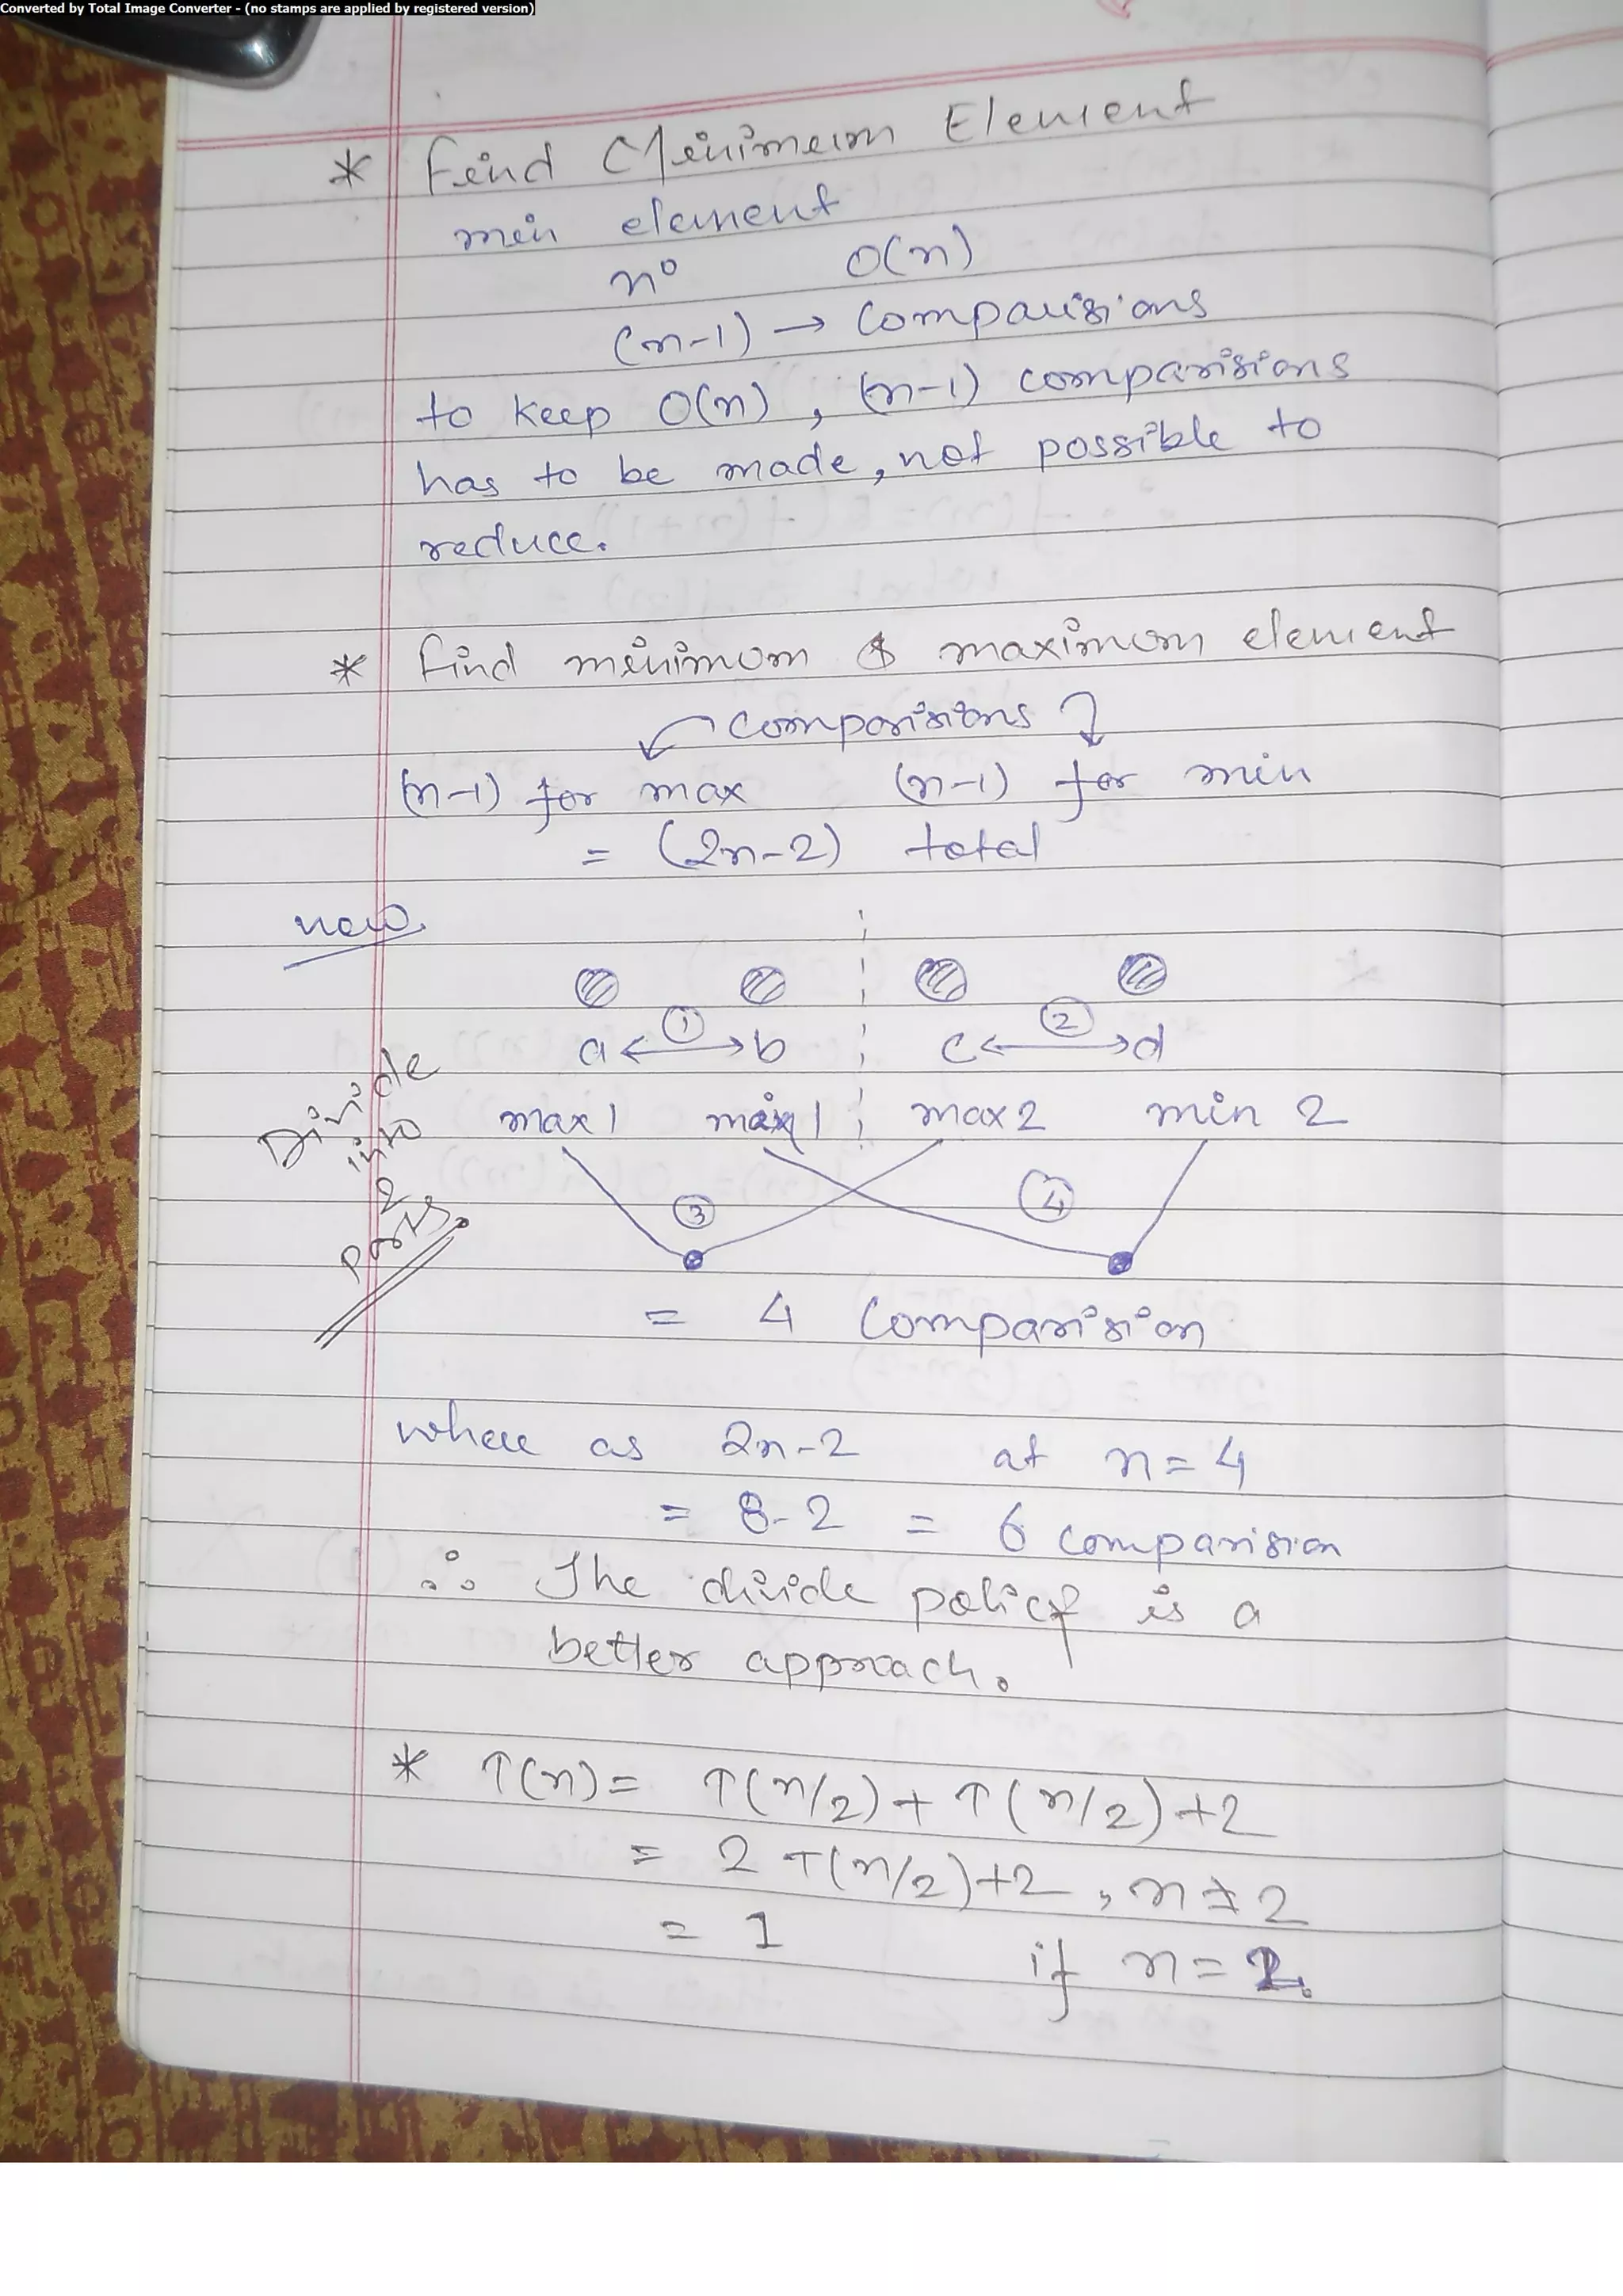 Converted by Total Image Converter - (no stamps are applied by registered version)
* Find Minimum Element
min element
n° O(n)
(n-1) → Comparisions
to keep O(n), (n-1) comparisions
has to be made, not possible to
reduce.
* Find minimum & maximum element
comparisions
(n-1) for max (n-1) for min
= (2n-2) total
new
① ②
a ↔ b c ↔ d
Divide
into
2
parts.
max1 min1 max2 min 2
③ ④
= 4 Comparision
where as 2n-2 at n=4
= 8-2 = 6 comparision
∴ The divide policy is a
better approach.
* T(n) = T(n/2) + T(n/2) +2
= 2 T(n/2)+2, n≠2
= 1 if n=2.